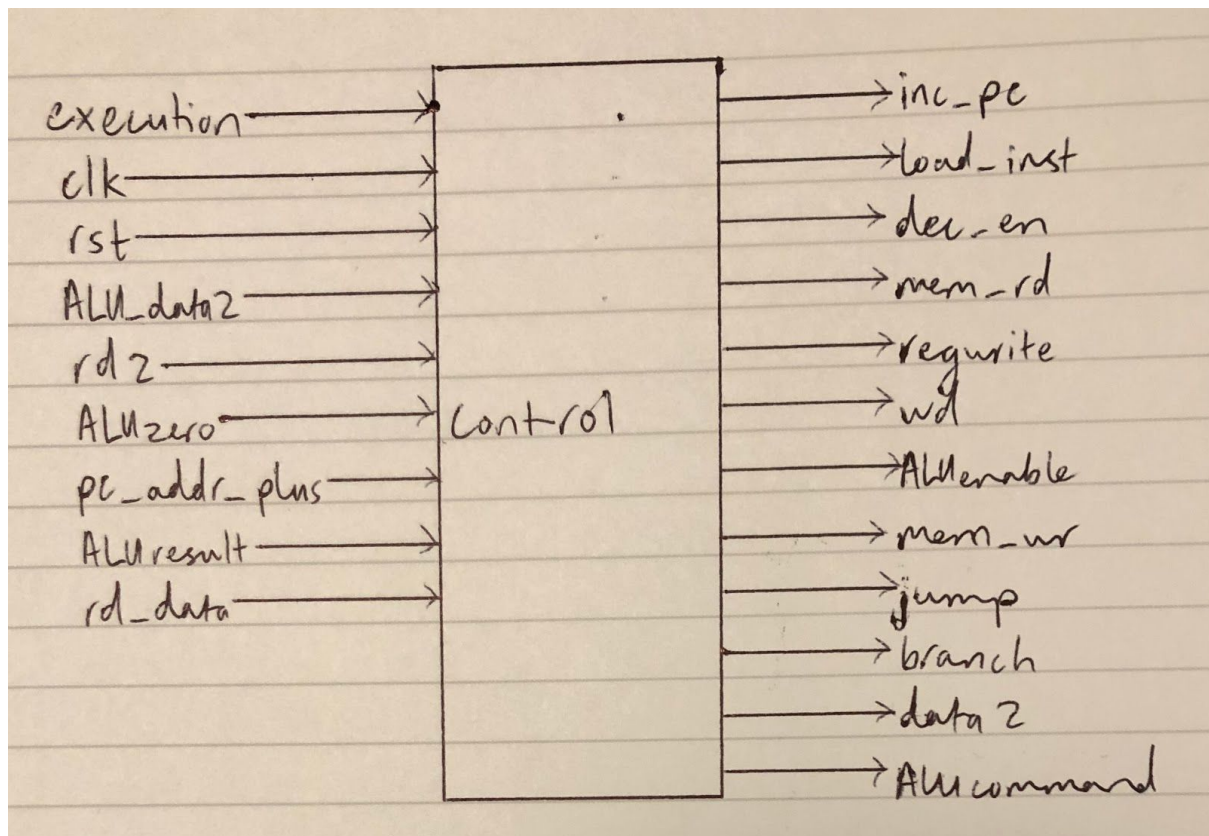 execution
clk
rst
ALU_data2
rd2
ALUzero
pc_addr_plus
ALUresult
rd_data
Control
inc_pc
load_inst
dec_en
mem_rd
regwrite
wd
ALUenable
mem_wr
jump
branch
data2
ALUcommand